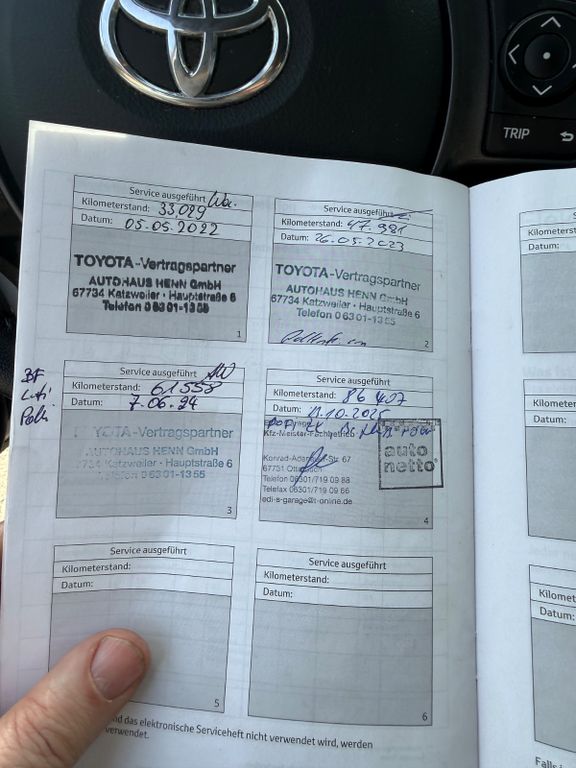 TRIP
Service ausgeführt
Kilometerstand: 33 029
Datum: 05.05.2022
TOYOTA-Vertragspartner
AUTOHAUS HENN GmbH
67734 Katzweiler · Hauptstraße 6
Telefon 0 63 01-13 55
1
Service ausgeführt
Kilometerstand: 47.981
Datum: 26.05.2023
TOYOTA-Vertragspartner
AUTOHAUS HENN GmbH
67734 Katzweiler · Hauptstraße 6
Telefon 0 63 01-13 55
2
Service ausgeführt
Kilometerstand: 61558
Datum: 7.06.24
TOYOTA-Vertragspartner
AUTOHAUS HENN GmbH
67734 Katzweiler · Hauptstraße 6
Telefon 0 63 01-13 55
3
BF
Service ausgeführt
Kilometerstand: 86 407
Datum: 10.2025
Kfz-Meister-Fachbetrieb
Str. 67
67731
Telefon 06301/719 09 88
Telefax 06301/719 09 66
edi-s-garage@t-online.de
auto
netto
4
Service ausgeführt
Kilometerstand:
Datum:
5
Service ausgeführt
Kilometerstand:
Datum:
6
nd das elektronische Serviceheft nicht verwendet wird, werden
verwendet.
Kilometerst
Datum:
Was ist
Kilometer
Datum:
Kilomete
Datum:
Falls